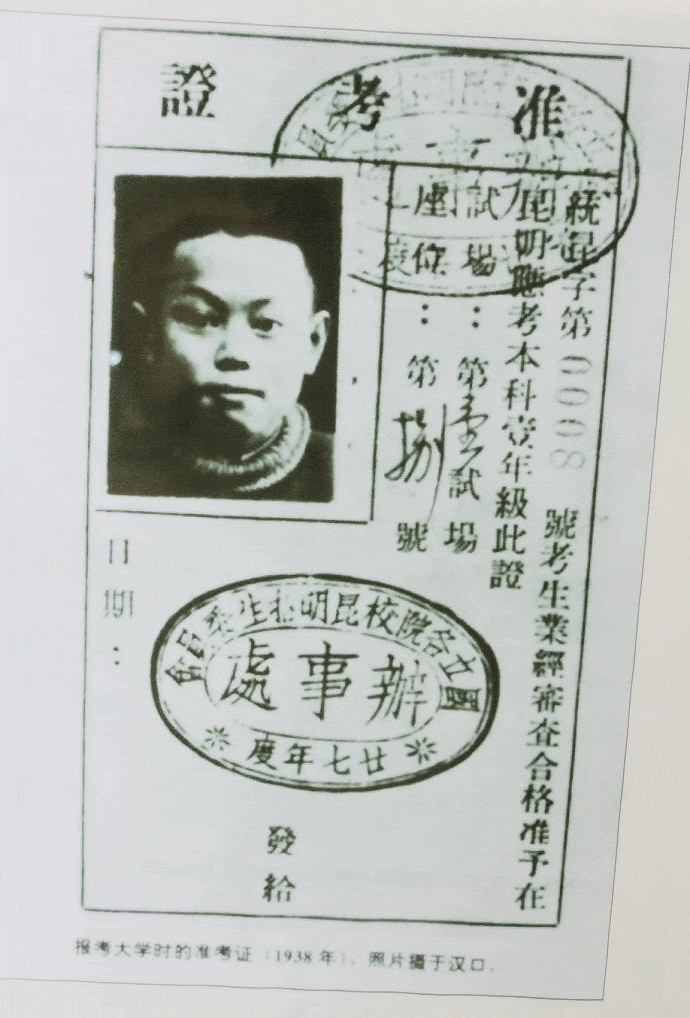 准考證
統昆字第0008號考生業經審查合格准予在
昆明應考本科壹年級此證
試場：第壹試場
座位：第捌號
日期：
國立各院校昆明招生委員會
辦事處
廿七年度
發給
报考大学时的准考证（1938年），照片摄于汉口。